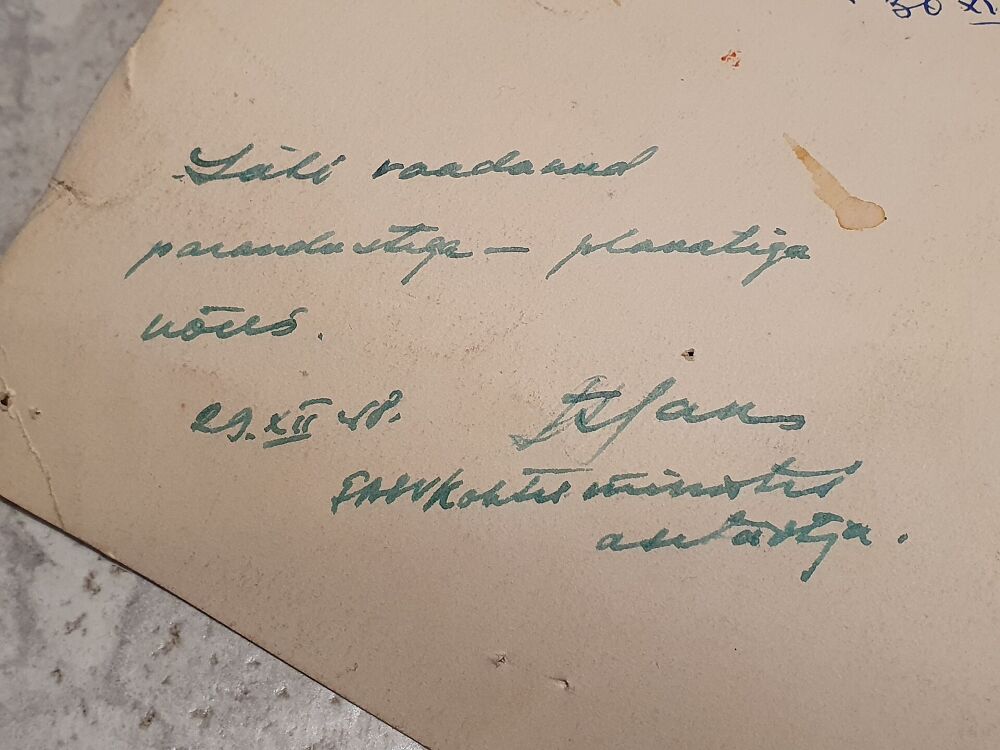 30 XI
Läbi vaadanud
parandustega — planatiga
nõus.
29.XII 48.
ENSV Kohtu ministri
asetäitja.